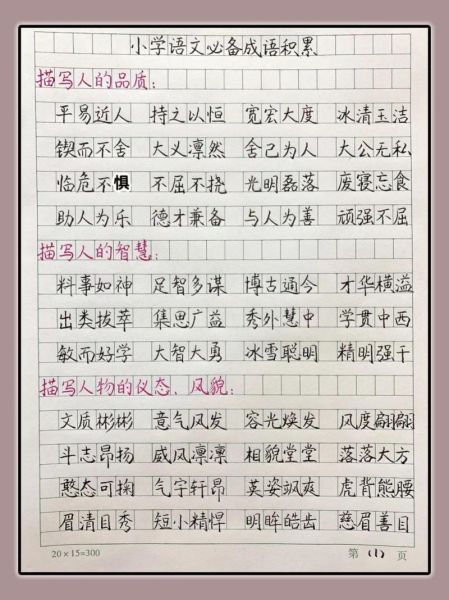 小学语文必备成语积累
描写人的品质：
平易近人 持之以恒 宽宏大度 冰清玉洁
锲而不舍 大义凛然 舍己为人 大公无私
临危不惧 不屈不挠 光明磊落 废寝忘食
助人为乐 德才兼备 与人为善 顽强不屈
描写人的智慧：
料事如神 足智多谋 博古通今 才华横溢
出类拔萃 集思广益 秀外慧中 学贯中西
敏而好学 大智大勇 冰雪聪明 精明强干
描写人物的仪态、风貌：
文质彬彬 意气风发 容光焕发 风度翩翩
斗志昂扬 威风凛凛 相貌堂堂 落落大方
憨态可掬 气宇轩昂 英姿飒爽 虎背熊腰
眉清目秀 短小精悍 明眸皓齿 慈眉善目
20×15=300 第 (1) 页